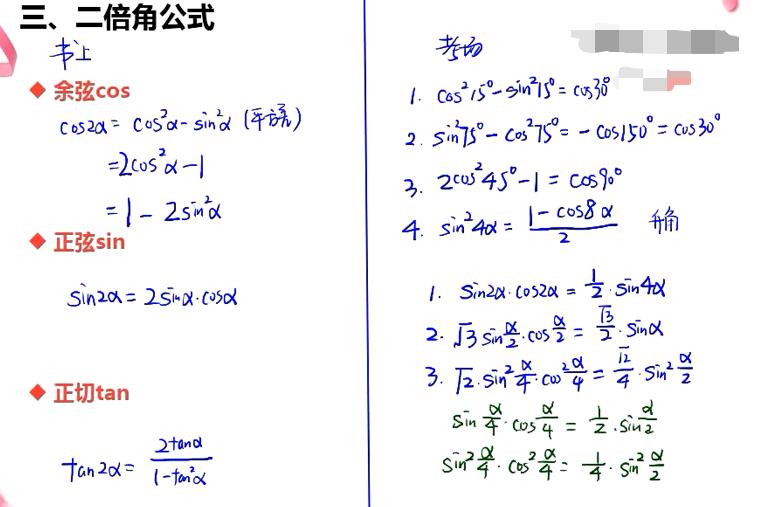 三、二倍角公式
书上
余弦cos
cos2α = cos²α - sin²α (平方差)
= 2cos²α - 1
= 1 - 2sin²α
正弦sin
sin2α = 2sinα·cosα
正切tan
tan2α = 2tanα / (1-tan²α)
考场
1. cos²15° - sin²15° = cos30°
2. sin²75° - cos²75° = - cos150° = cos30°
3. 2cos²45° - 1 = cos90°
4. sin²4α = (1 - cos8α) / 2 升角
1. sin2α·cos2α = 1/2·sin4α
2. √3 sin α/2·cos α/2 = √3/2·sinα
3. √2·sin² α/4·cos² α/4 = √2/4·sin² α/2
sin α/4·cos α/4 = 1/2·sin α/2
sin² α/4·cos² α/4 = 1/4·sin² α/2